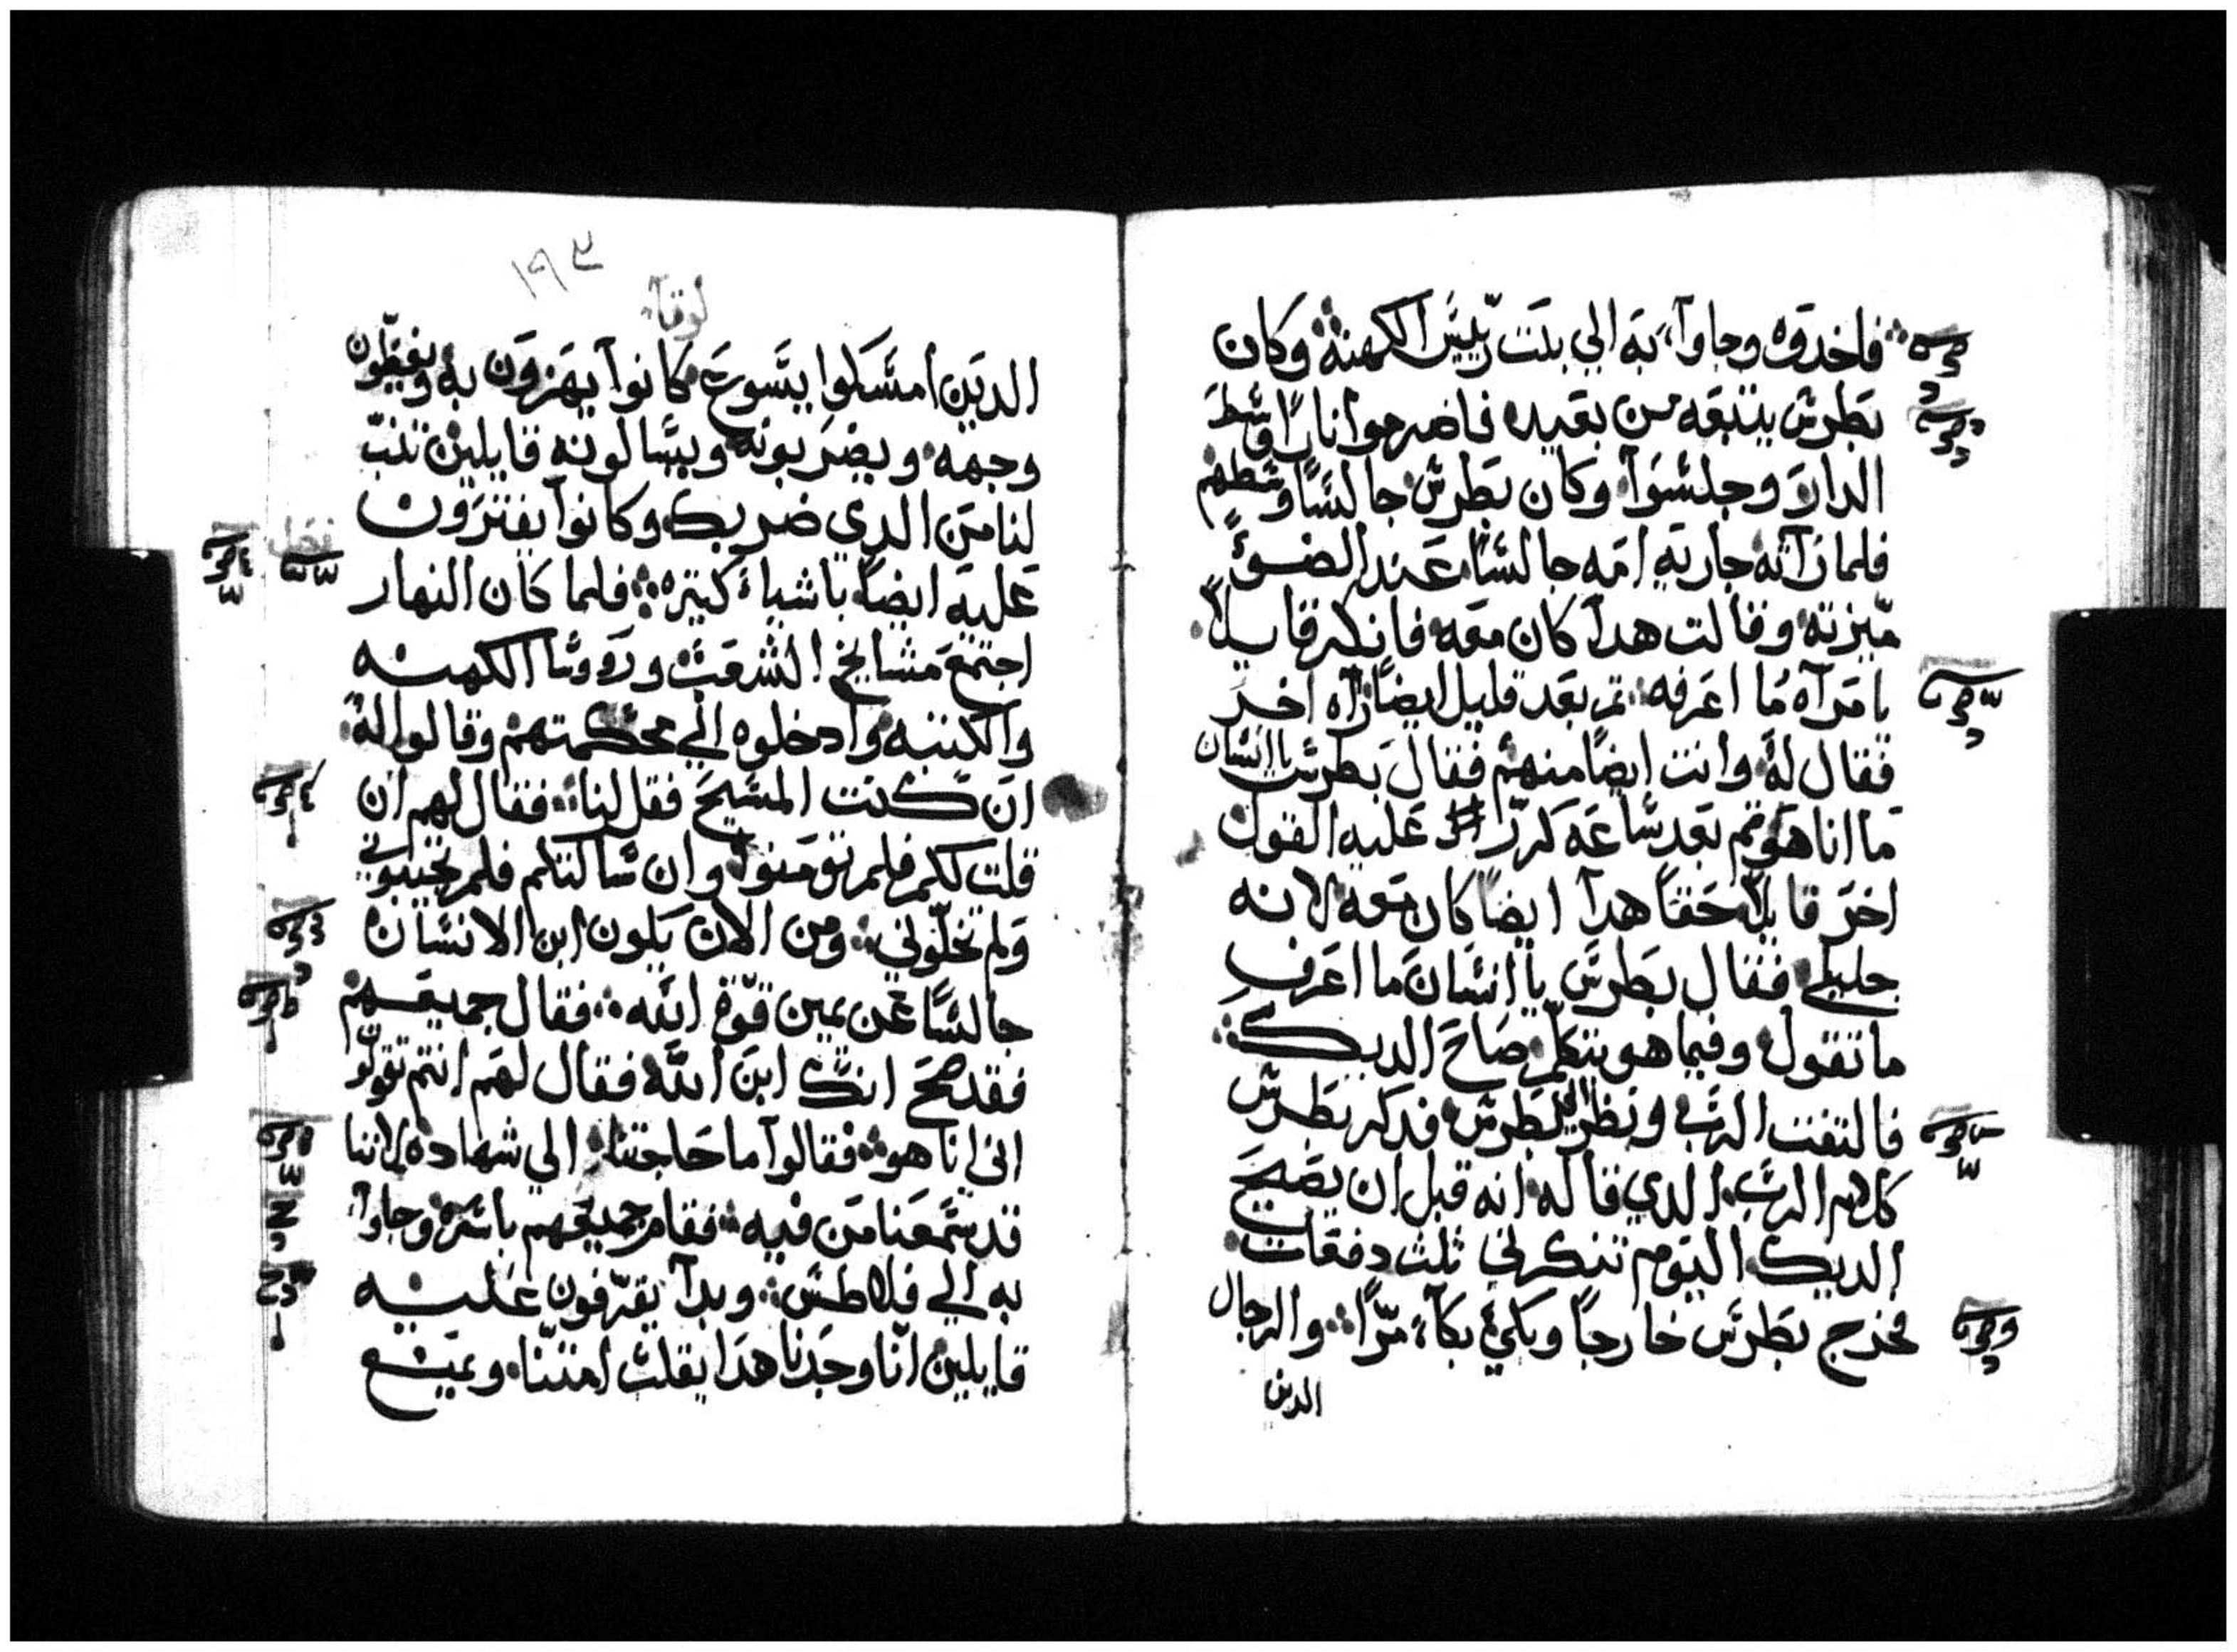 فاخدوه وجاوآء به الي بيت رييس الكهنة وكان
بطرس يتبعه من بعيد فاضرموا نارًا في وسط
الدار وجلسوآ وكان بطرس جالسًا وسطهم
فلما رآته جاريه امه جالسًا عند الضوء
ميّزته وقالت هدآ كان معه فانكر قايلًا
يا مرآه ما اعرفه ثم بعد قليل ايضًا رآه اخر
فقال له وانت ايضًا منهم فقال بطرس ياانسان
ما انا هو ثم بعد ساعه كرّر عليه القول
اخر قايلًا حقًا هدآ ايضًا كان معه لانه
جليلي فقال بطرس ياانسان ما اعرف
ما تقول وفيما هو يتكلّم صاح الديك
فالتفت الرب ونظر الي بطرس فدكر بطرس
كلام الرب الدي قاله انه قبل ان يصيح
الديك اليوم تنكرني ثلث دفعات
فخرج بطرس خارجًا وبكي بكآء مرًّا والرجال
الدين
١٩٣
لوقا
الدين امسكوا يسوع كانوآ يهزون به ويغطّون
وجهه ويضربونه ويسالونه قايلين تنبّ
لنا من الدي ضربك وكانوآ يفترون
عليه ايضًا باشياء كتيره فلما كان النهار
اجتمع مشايخ الشعب وروسا الكهنه
والكتبه وادخلوه الي محكمتهم وقالوا له
ان كنت المسيح فقل لنا فقال لهم ان
قلت لكم فلم تومنوا وان سالتكم فلم تجيبوني
ولم تخلّوني ومن الان يكون ابن الانسان
جالسًا عن يمين قوّة الله فقال جميعهم
فقد صح انك ابن الله فقال لهم انتم تقولو
اني انا هو فقالوآ ما حاجتنا الي شهاده لاننا
قد سمعنا من فيه فقام جميعهم باسره وجاوآ
به الي فلاطس وبدآ يقرفون عليه
قايلين انّا وجدنا هدا يقلب امتنا ويمنع